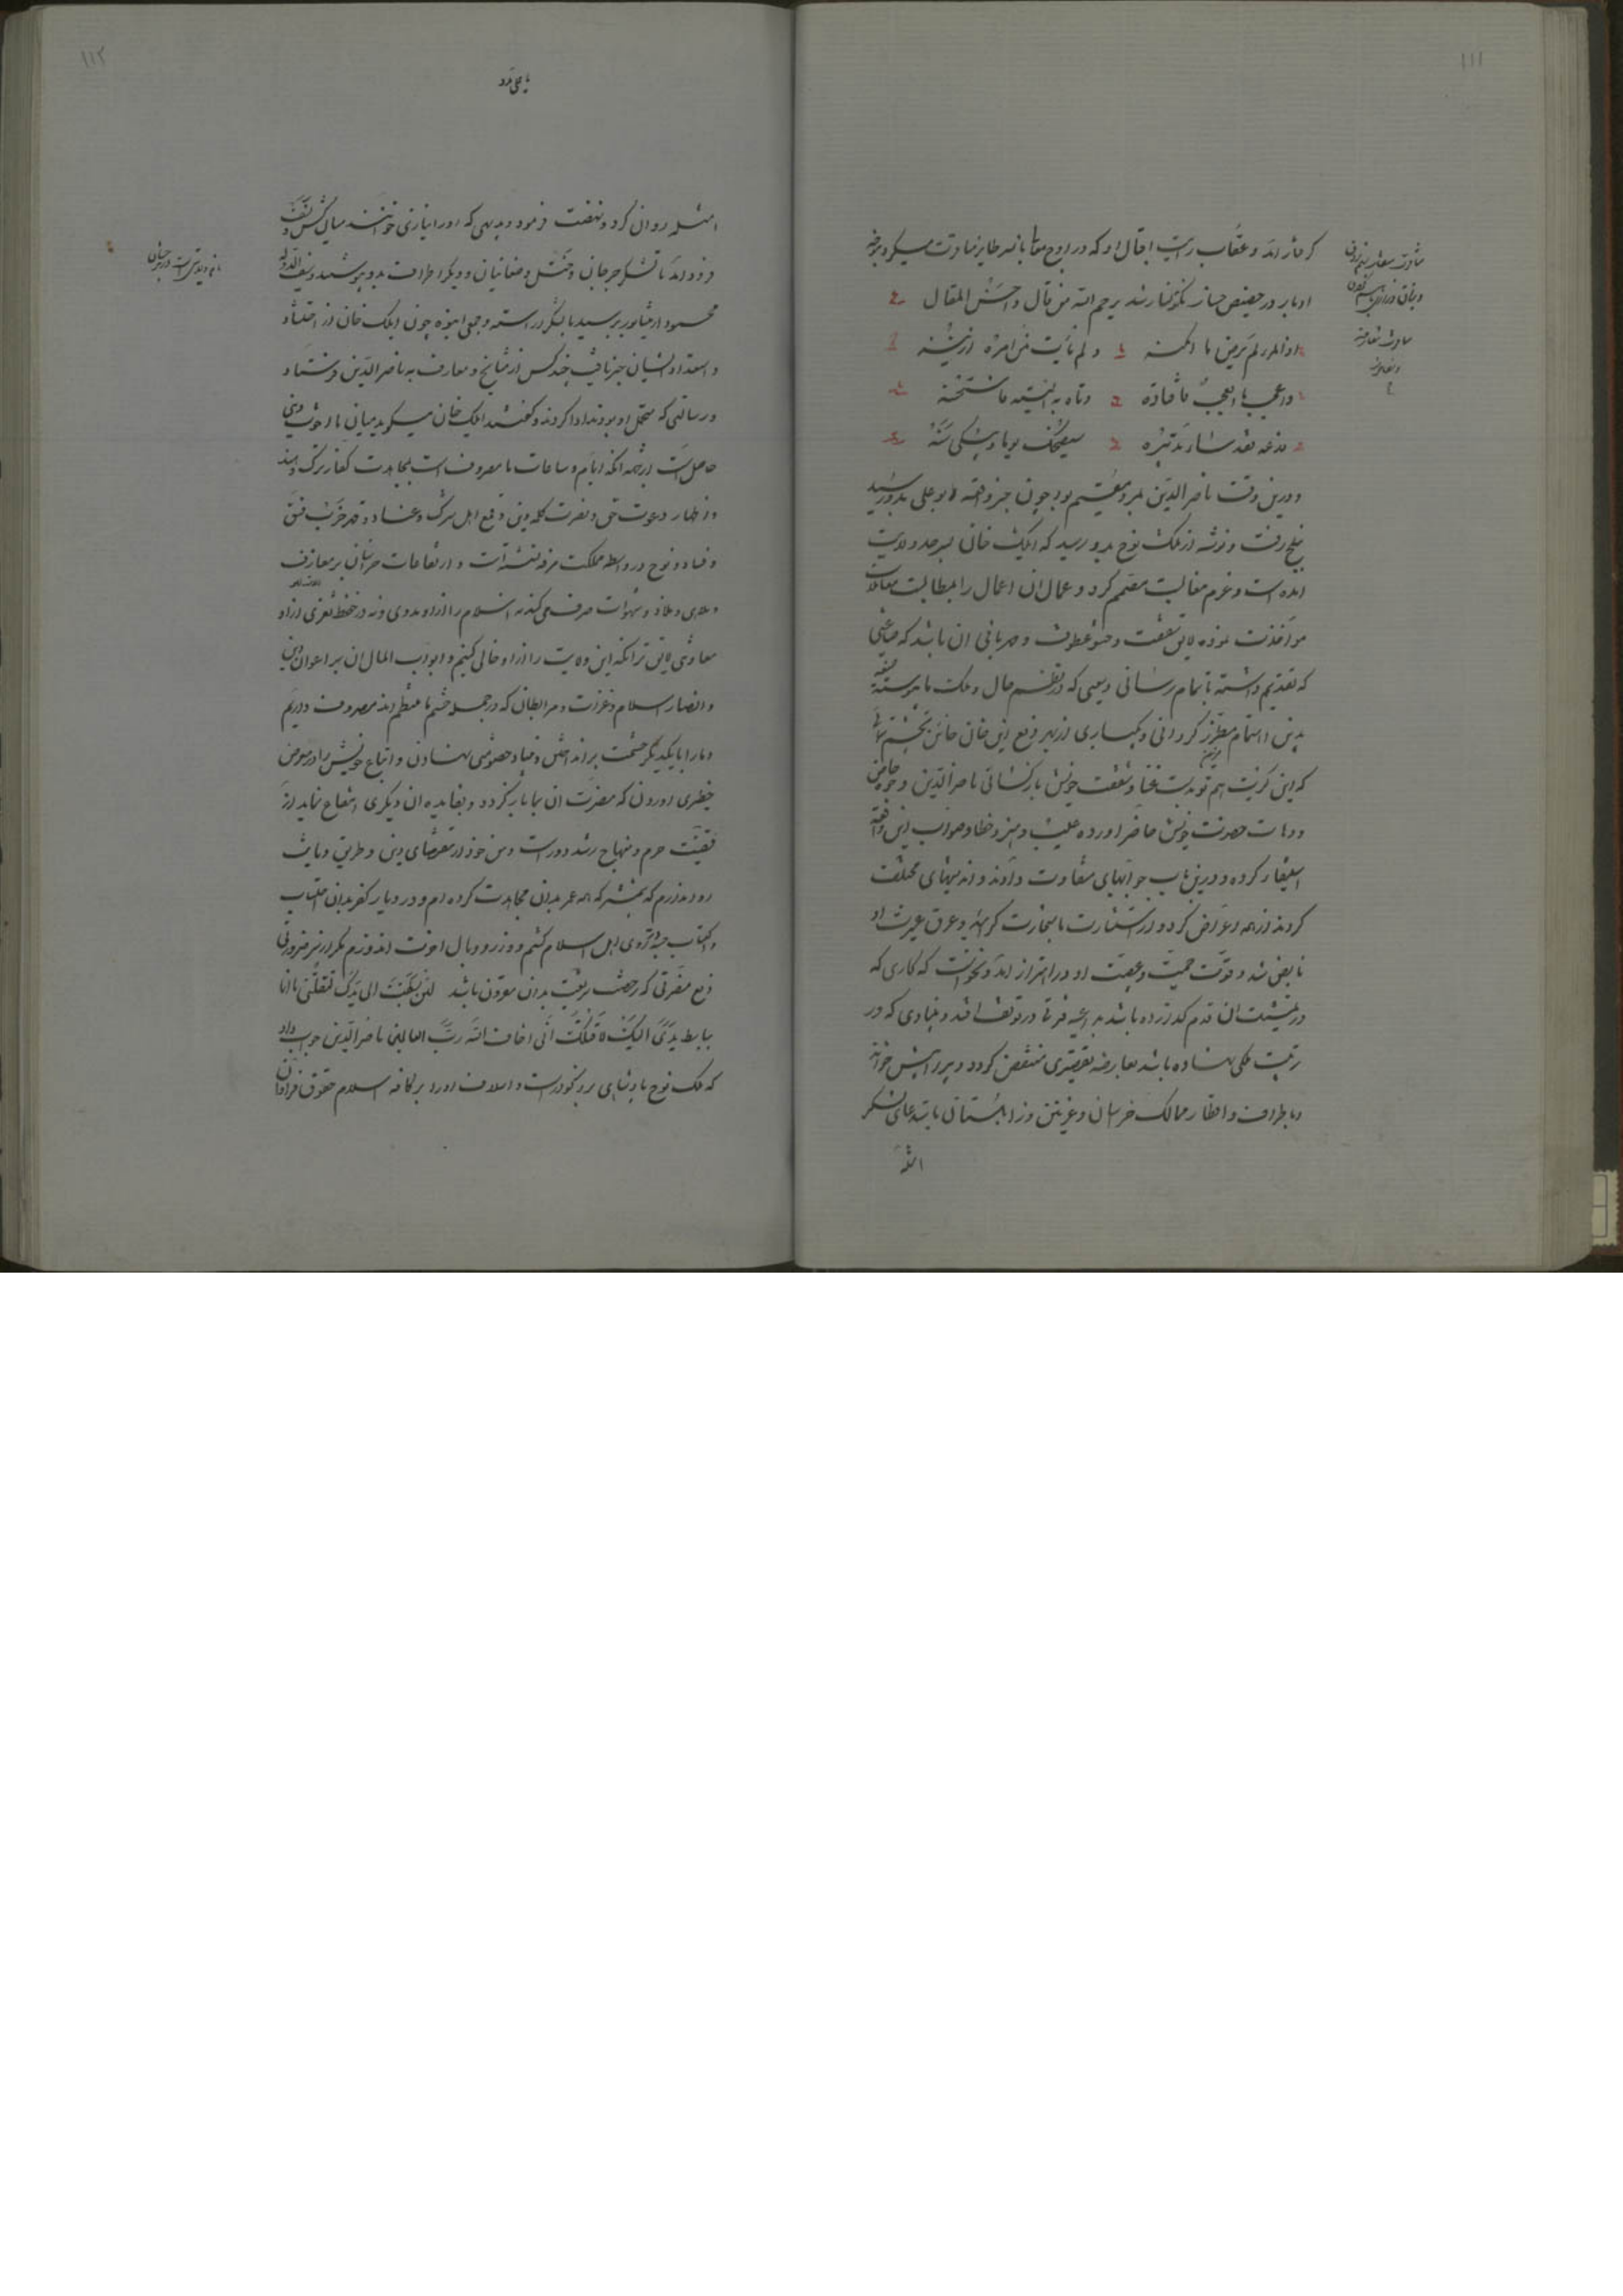 ۱۱۱
گرفتار آمد و عقاب رایت اقبال او که در اوج معالی با نسر طایر مباوات میکرد برخم
ادبار در حضیض خسار نگونسار شد یرحم الله من قال و احسن المقال
اذا المرء لم یرض ما امکنه و لم یأت من امره ازینه
و اعجب بالعجب فاقتاده و تاه به التیه فاستحسنه
فدعه فقد ساء تدبیره سیضحک یوما و یبکی سنه
و درین وقت ناصر الدین بمرو مقیم بود چون خبر واقعه ابو علی بدو رسید
ببلخ رفت و نوشته از ملک نوح بدو رسید که ایلک خان بسرحد ولایت
آمده است و عزم مغالبت مصمم کرد و عمال آن اعمال را بمطالبت معاملات
مواخذت نموده لایق شفقت و حنو عطوفت و مهربانی آن باشد که صنایعی
که تقدیم داشته باتمام رسانی و سعی که در نظم حال و ملک ما پیوسته
بدین اهتمام مطرز گردانی و یکباری از بهر دفع این خان خائن تجشم نمائی
که این کربت هم تو بدست غنا و شفقت خویش بازگشائی ناصر الدین وجوه خاص
و دهات حضرت خویش حاضر آورده علیشان و از خطا و صواب این واقعه
استیشار کرده و درین باب جوابهای متفاوت دادند و اندیشهای مختلف
کردند از همه اعراض کرد و از استشارت باستخارت گریخت و عرق غیرت او
نابض شد و قوت حمیت و عصبیت او در اهتزاز آمد و نخواست که کاری که
در تمشیت آن قدم کد زده باشد بداعیه فترتی در توقف افتد و بنیادی که در
تربیت ملکی نهاده باشد بعارضه تقصیری منتقض گردد و پیروانش خواند
و باطراف و اقطار ممالک خراسان و غزنین و زابلستان باستدعای لشکر
امثله
۱۱۲
امثله روان کرد و نهضت فرمود و بدیهی که او را نیازی خوانند میان کش و نسف
فرود آمد تا لشکر جرجان و ختل و صغانیان و دیگر اطراف بدو پیوستند و سیف الدوله
محمود از نیشابور برسید با لشکر آراسته و جمعی انبوه چون ایلک خان از احتشاد
و استعداد ایشان خبر یافت چند کس از مشایخ و معارف به ناصر الدین فرستاد
و رسالتی که متحمل او بودند ادا کردند و گفتند ایلک خان میگوید میان ما اخوت دینی
حاصل است از جهة آنکه ایام و ساعات ما مصروف است بمجاهدت کفار ترک و هند
و اظهار دعوت حق و نصرت کلمه دین و قمع اهل شرک و عناد و قهر حزب فسق
و فساد و نوح در واسطه مملکت مرفه نشسته است و ارتفاعات خراسان بر معازف
و ملاهی و ملاذ و شهوات صرف میکند نه اسلام را از او مددی و نه در حفظ ثغری از او
معاونتی لایق تر آنکه این ولایت را از او خالی کنیم و ابواب المال آن بر اعوان دین
و انصار اسلام و غزات و مرابطان که در جمله حشم ما منتظم اند مصروف داریم
و ما را با یکدیگر خشمت بر انداختن و بنیاد خصومتی نهادن و اتباع خویش را در معرض
خطری آوردن که مضرت آن بما بازگردد و بفایده آن دیگری انتفاع نماید از
قضیت حزم و منهاج رشد دور است و من خود از مقتضای دین و طریق دیانت
روا ندارم که شمشیر که همه عمر بدان مجاهدت کرده ام و در دیار کفر بدان
در روی اهل اسلام کشم و وزر و وبال آخرت اندوزم مگر از سر ضرورتی
دفع مضرتی که رخصت شریعت بدان مقرون باشد لئن بسطت الی یدک لتقتلنی ما انا
بباسط یدی الیک لاقتلک انی اخاف الله رب العالمین ناصر الدین جواب داد
که ملک نوح پادشاهی بزرگوار است و اسلاف او را بر کافه اسلام حقوق فراوان